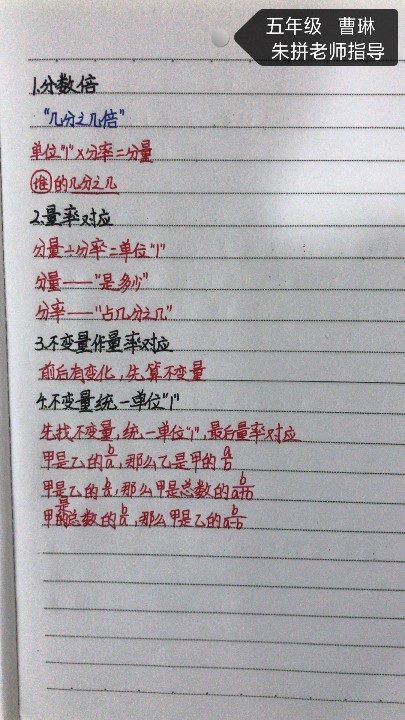 五年级 曹琳
朱拼老师指导
1.分数倍
“几分之几倍”
单位“1”×分率=分量
谁的几分之几
2.量率对应
分量÷分率=单位“1”
分量——“是多少”
分率——“占几分之几”
3.不变量作量率对应
前后有变化,先算不变量
4.不变量统一单位“1”
先找不变量,统一单位“1”,最后量率对应
甲是乙的b/a,那么乙是甲的a/b
甲是乙的b/a,那么甲是总数的b/a+b
甲是总数的b/a,那么甲是乙的b/a-b